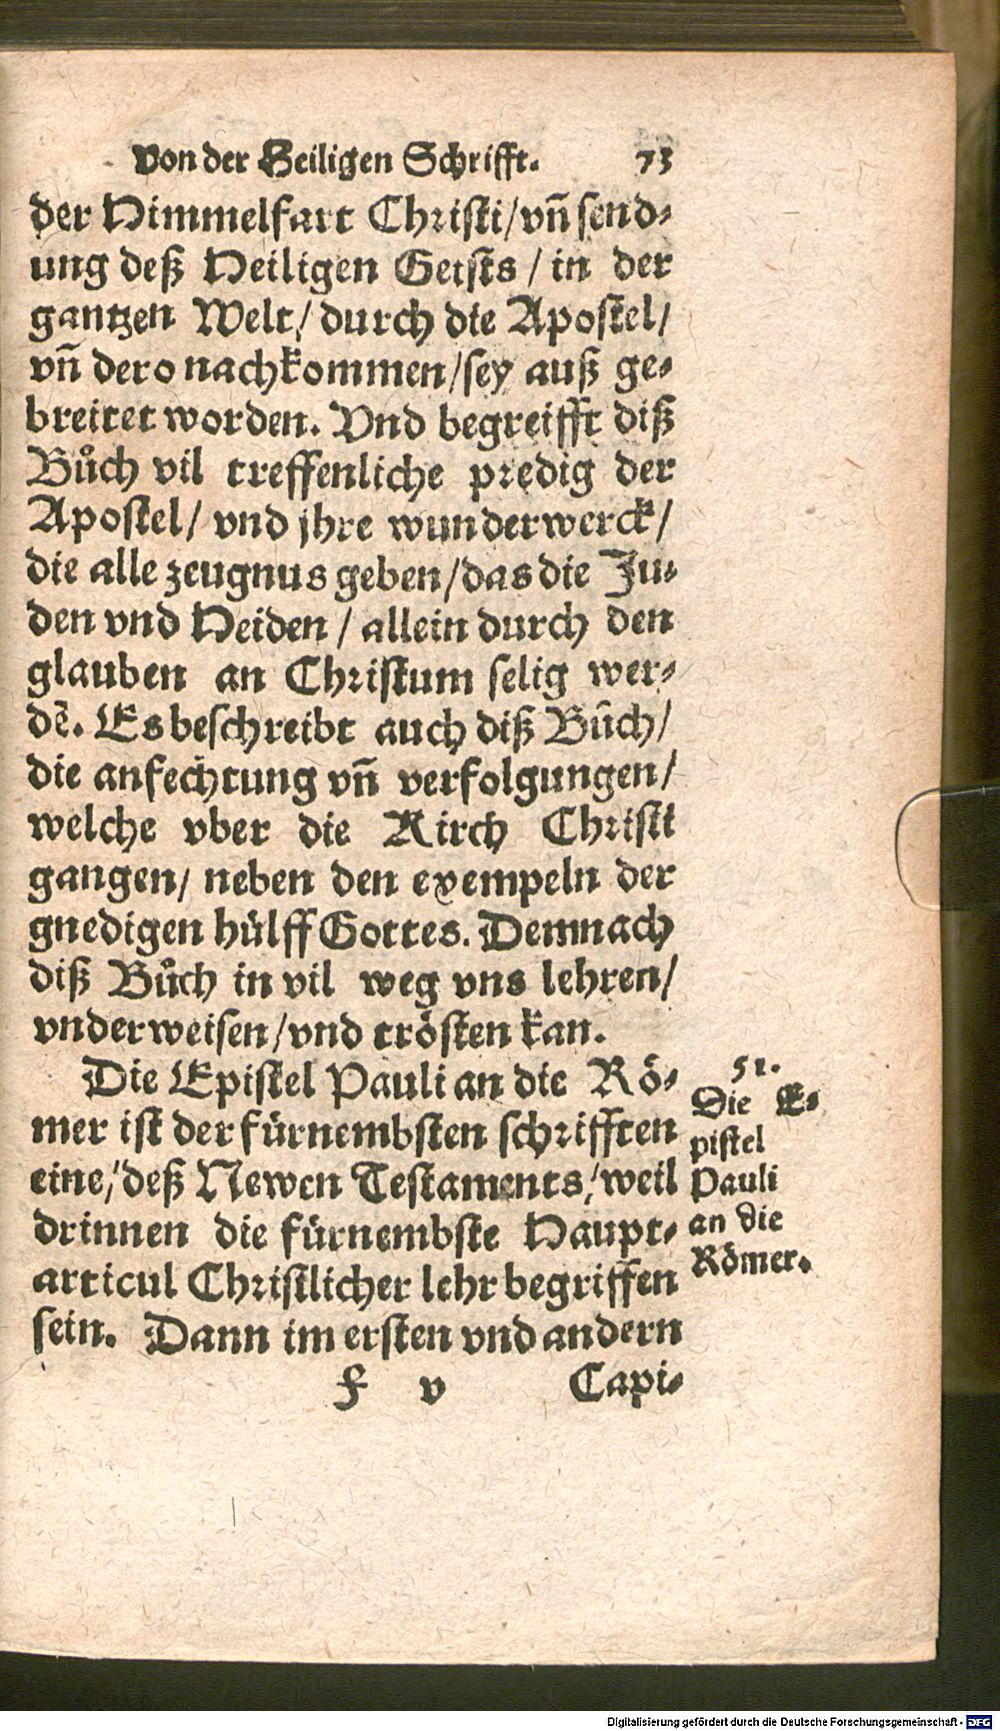 von der Heiligen Schrifft. 73
der Himmelfart Christi/ vñ send-
ung deß Heiligen Geists / in der
gantzen Welt/ durch die Apostel/
vñ dero nachkommen/ sey auß ge-
breitet worden. Vnd begreifft diß
Bůch vil treffenliche predig der
Apostel/ vnd jhre wunderwerck/
die alle zeugnus geben/ das die Ju-
den vnd Heiden / allein durch den
glauben an Christum selig wer-
dẽ. Es beschreibt auch diß Bůch/
die anfechtung vñ verfolgungen/
welche vber die Kirch Christi
gangen/ neben den exempeln der
gnedigen hülff Gottes. Demnach
diß Bůch in vil weg vns lehren/
vnderweisen/ vnd trösten kan.
Die Epistel Pauli an die Rö-
mer ist der fürnembsten schrifften
eine/ deß Newen Testaments/ weil
drinnen die fürnembste Haupt-
articul Christlicher lehr begriffen
sein. Dann im ersten vnd andern
f v Capi-
51.
Die E-
pistel
Pauli
an die
Römer.
Digitalisierung gefördert durch die Deutsche Forschungsgemeinschaft - DFG